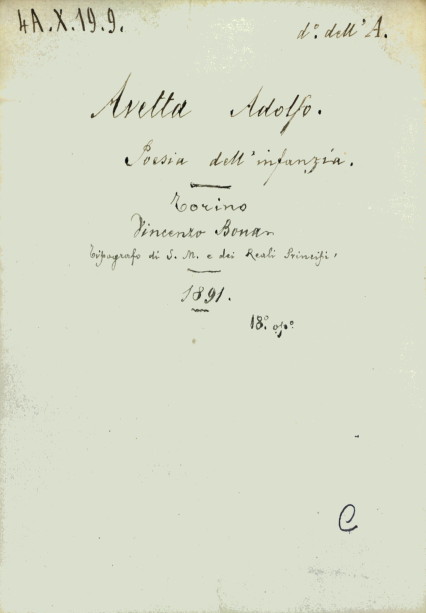 4A.X.19.9.
d°. dell' A.
Avetta Adolfo.
Poesia dell'infanzia.
Torino
Vincenzo Bona
Tipografo di S. M. e dei Reali Principi
1891.
18° op°
C